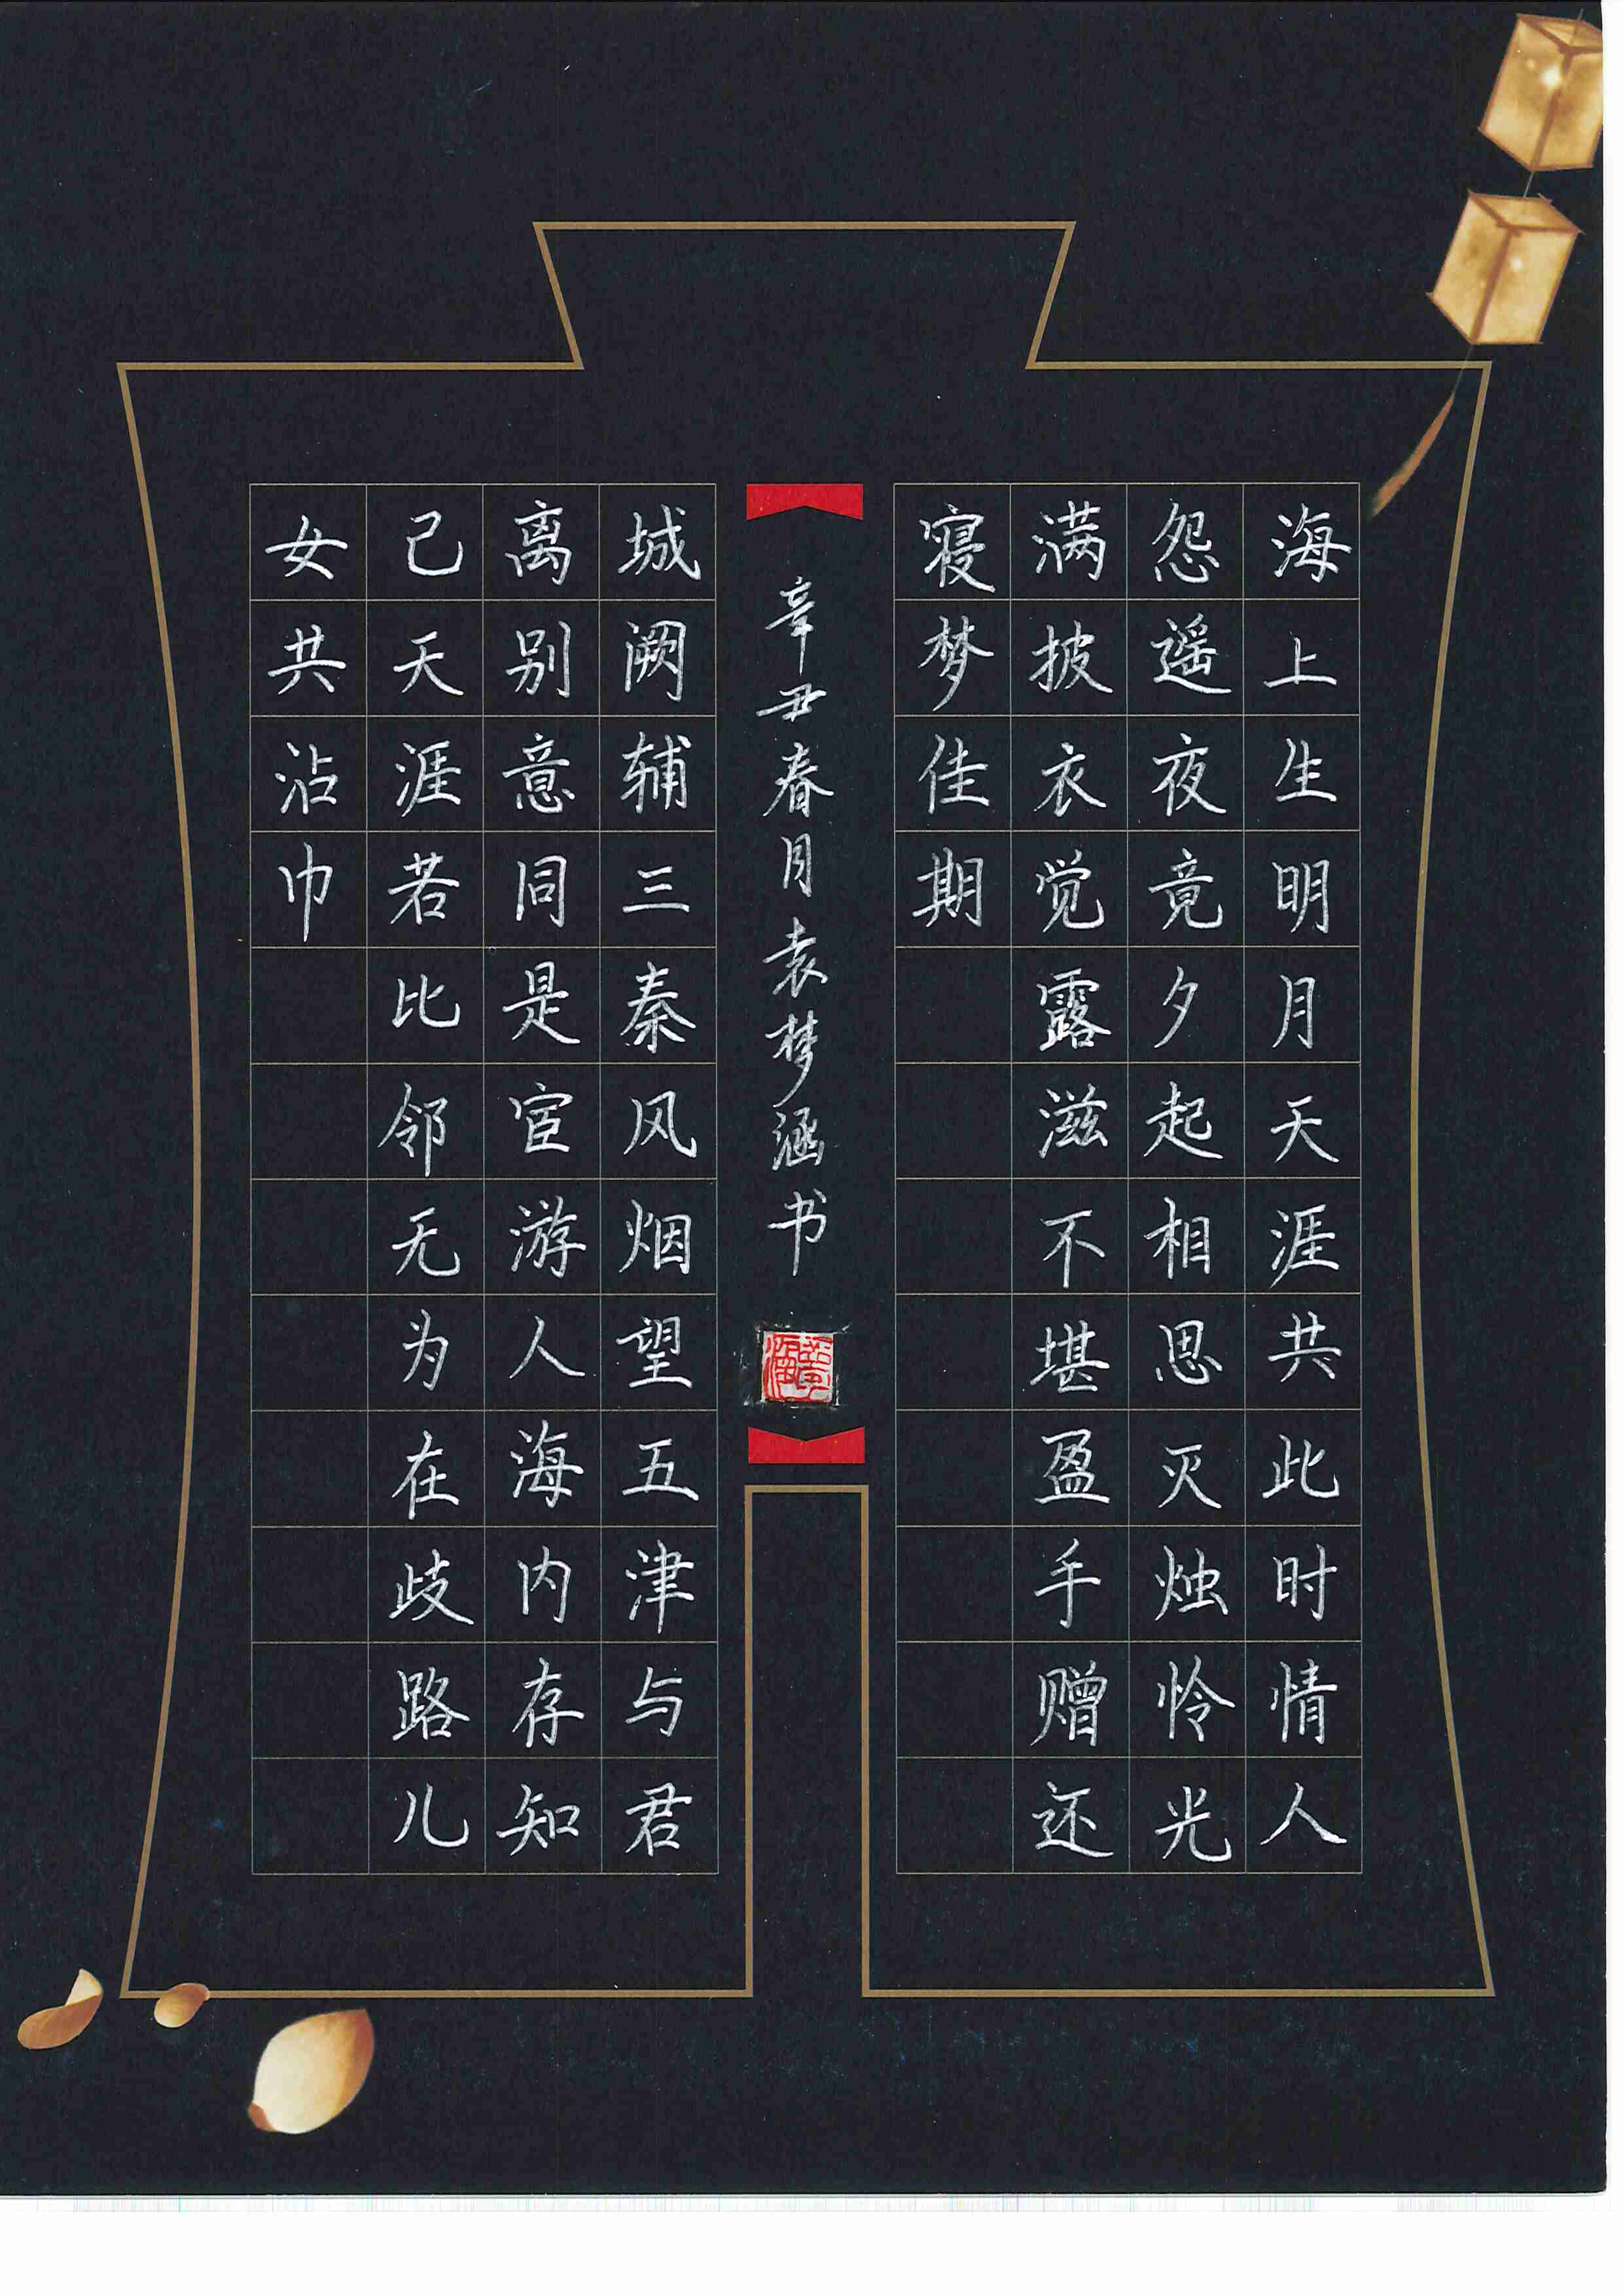 海上生明月天涯共此时情人
怨遥夜竟夕起相思灭烛怜光
满披衣觉露滋不堪盈手赠还
寝梦佳期
辛丑春月袁梦涵书
城阙辅三秦风烟望五津与君
离别意同是宦游人海内存知
己天涯若比邻无为在歧路儿
女共沾巾